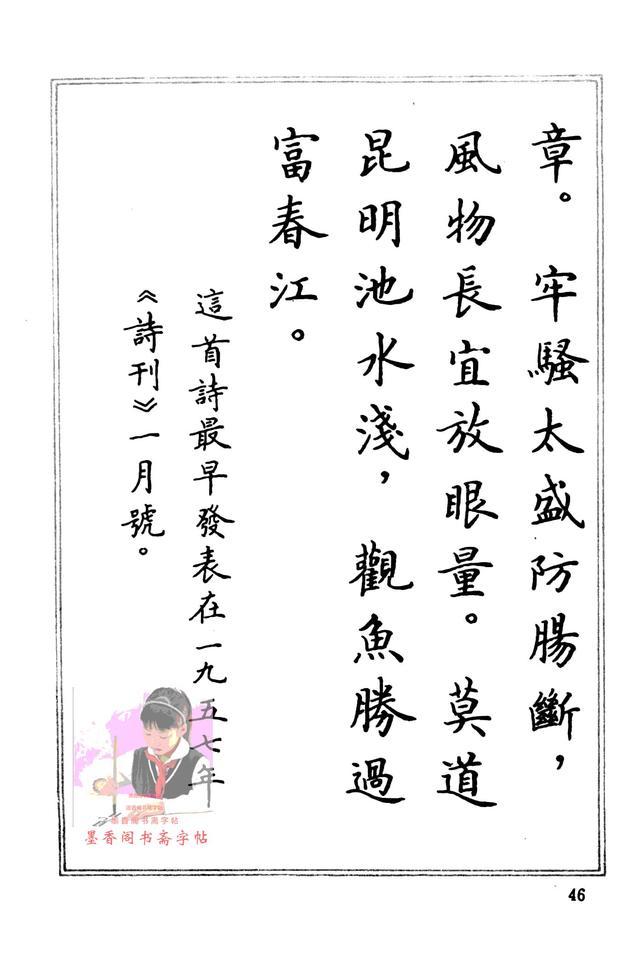 章。 牢騷太盛防腸斷，
風物長宜放眼量。 莫道
昆明池水淺， 觀魚勝過
富春江。
這首詩最早發表在一九五七年
《詩刊》一月號。
墨香阁书斋字帖
墨香阁书斋字帖
46